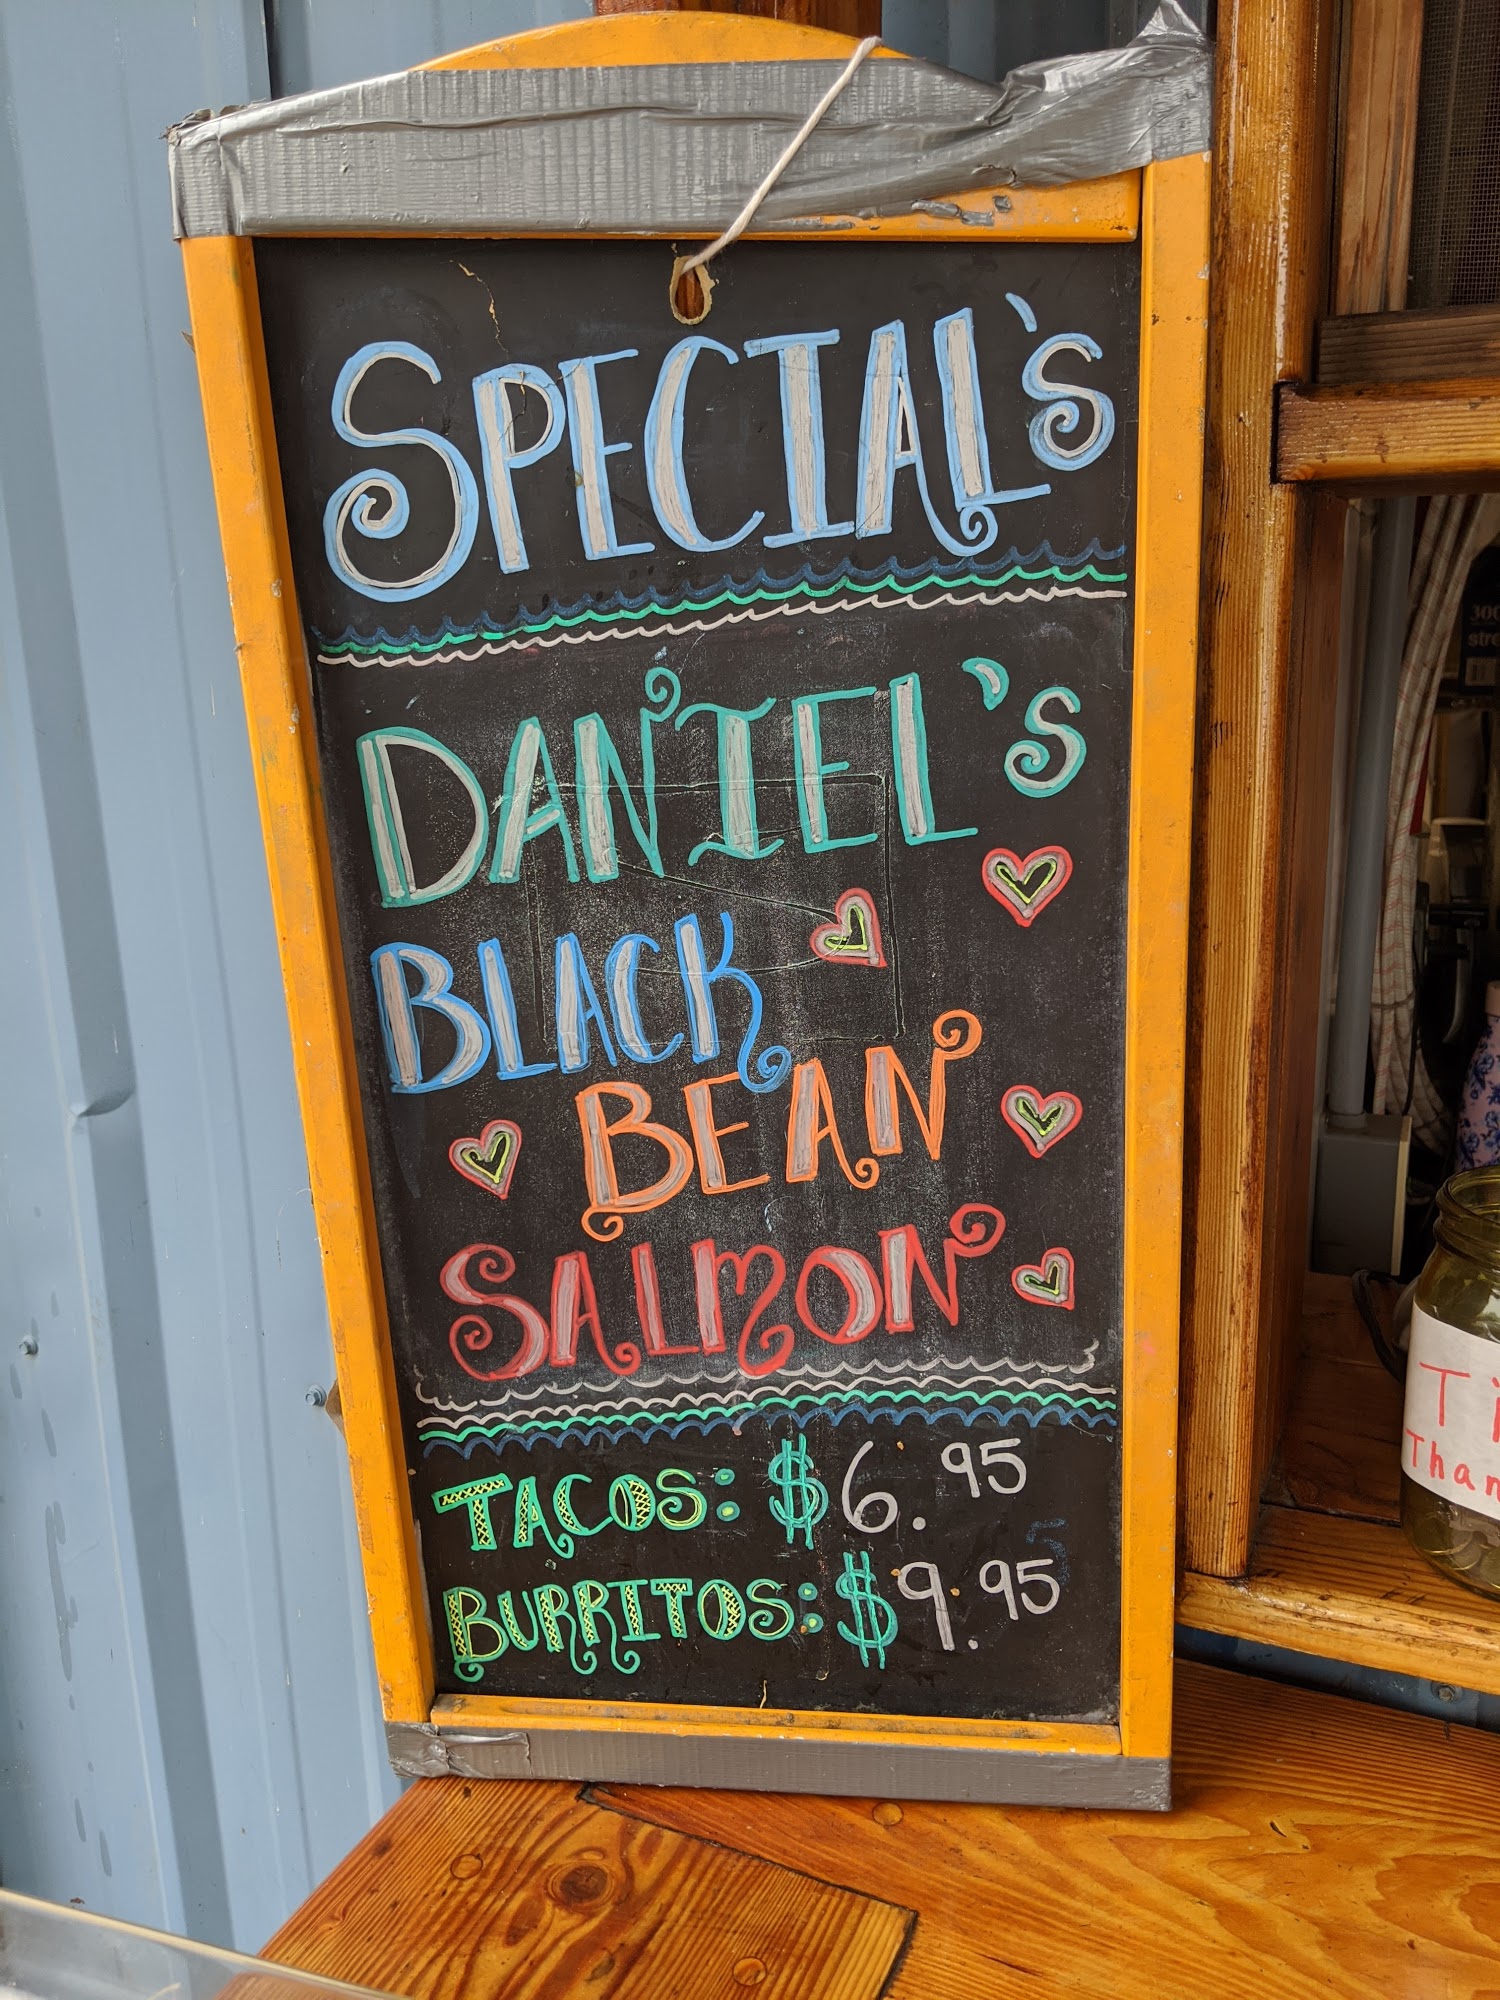 SPECIAL's
DANIEL's
BLACK
BEAN
SALMON
TACOS: $6.95
BURRITOS: $9.95